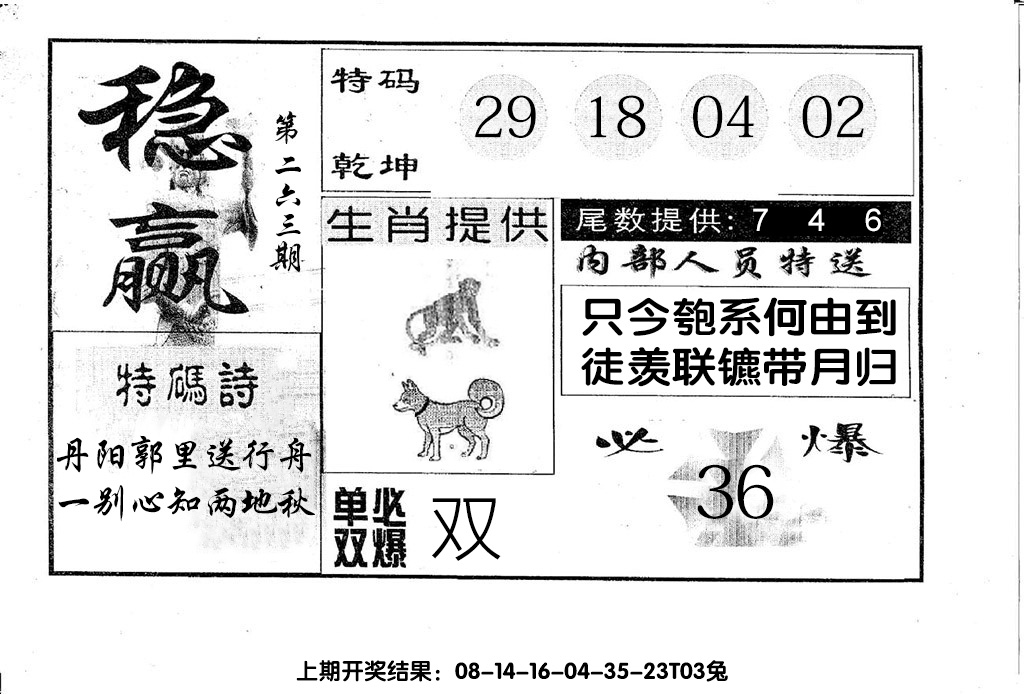 稳赢
第二六三期
特码
乾坤
29 18 04 02
生肖提供
尾数提供: 7 4 6
内部人员特送
只今匏系何由到
徒羡联镳带月归
特碼詩
丹阳郭里送行舟
一别心知两地秋
单双必爆
双
必爆
36
上期开奖结果：08-14-16-04-35-23T03兔